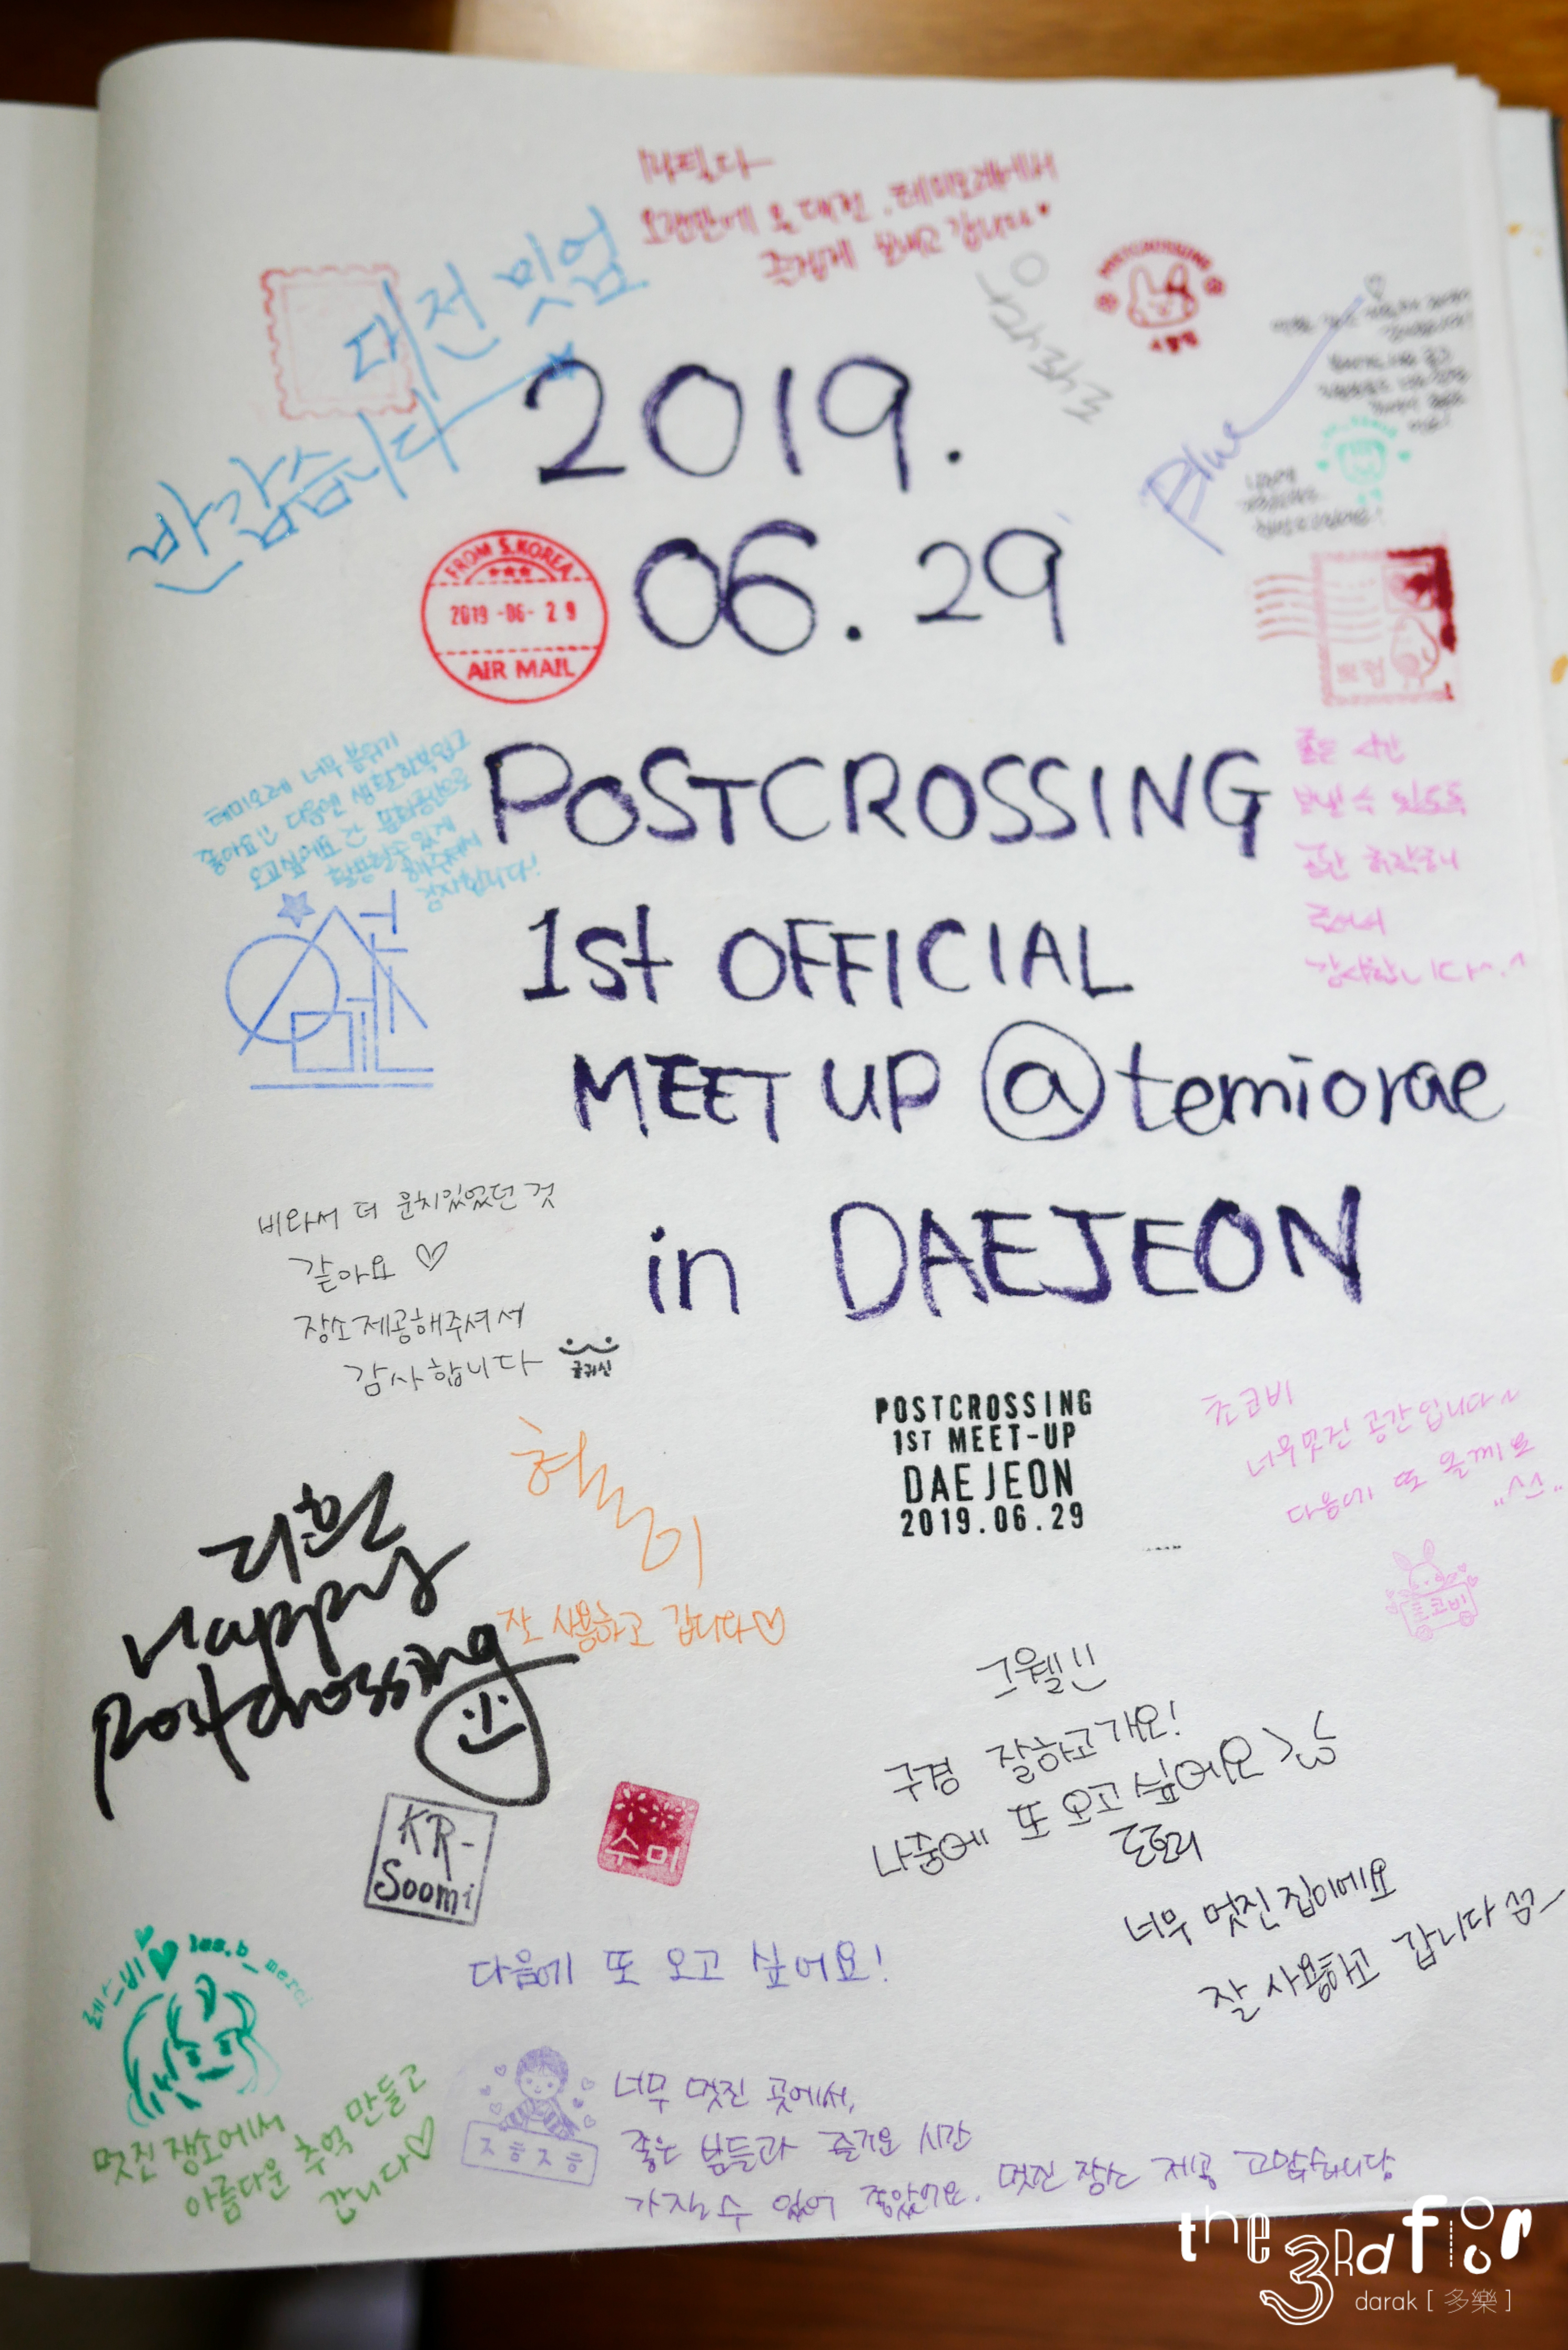 오랜만에 온 대전. 테미오래에서
즐겁게 보내고 갑니다♥
대전 밋업
반갑습니다
POSTCROSSING
Blue
2019.
06.29
FROM S.KOREA
2019-06-29
AIR MAIL
테미오래 너무 분위기
좋아요!! 다음엔 생활한복입고
오고싶어요
감사합니다!
POSTCROSSING
1st OFFICIAL
MEET UP @temiorae
in DAEJEON
좋은 시간
보낼 수 있도록
공간 허락하여
주셔서
감사합니다^.^
비와서 더 운치있었던 것
같아요 ♡
장소제공해주셔서
감사합니다
글귀신
POSTCROSSING
1ST MEET-UP
DAEJEON
2019.06.29
초코비
너무멋진 공간입니다~
다음에 또 올께요
"^^"
Happy
postcrossing
잘 사용하고 갑니다♡
그웬!!
구경 잘하고가요!
나중에 또 오고싶어요
도로리
너무 멋진집이에요
잘 사용하고 갑니다
KR-
Soomi
수미
다음에 또 오고 싶어요!
멋진 장소에서
아름다운 추억 만들고
갑니다♡
즈흐즈흐
너무 멋진 곳에서,
좋은 분들과 즐거운 시간
가질 수 있어 좋았어요. 멋진 장소 제공 고맙습니당
the 3Rd floor
darak [ 多樂 ]